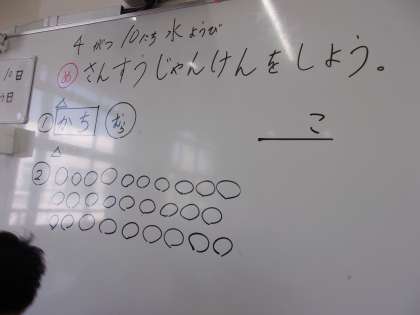 4がつ10にち水ようび
め さんすうじゃんけんをしよう。
10日
① かち
こ
②